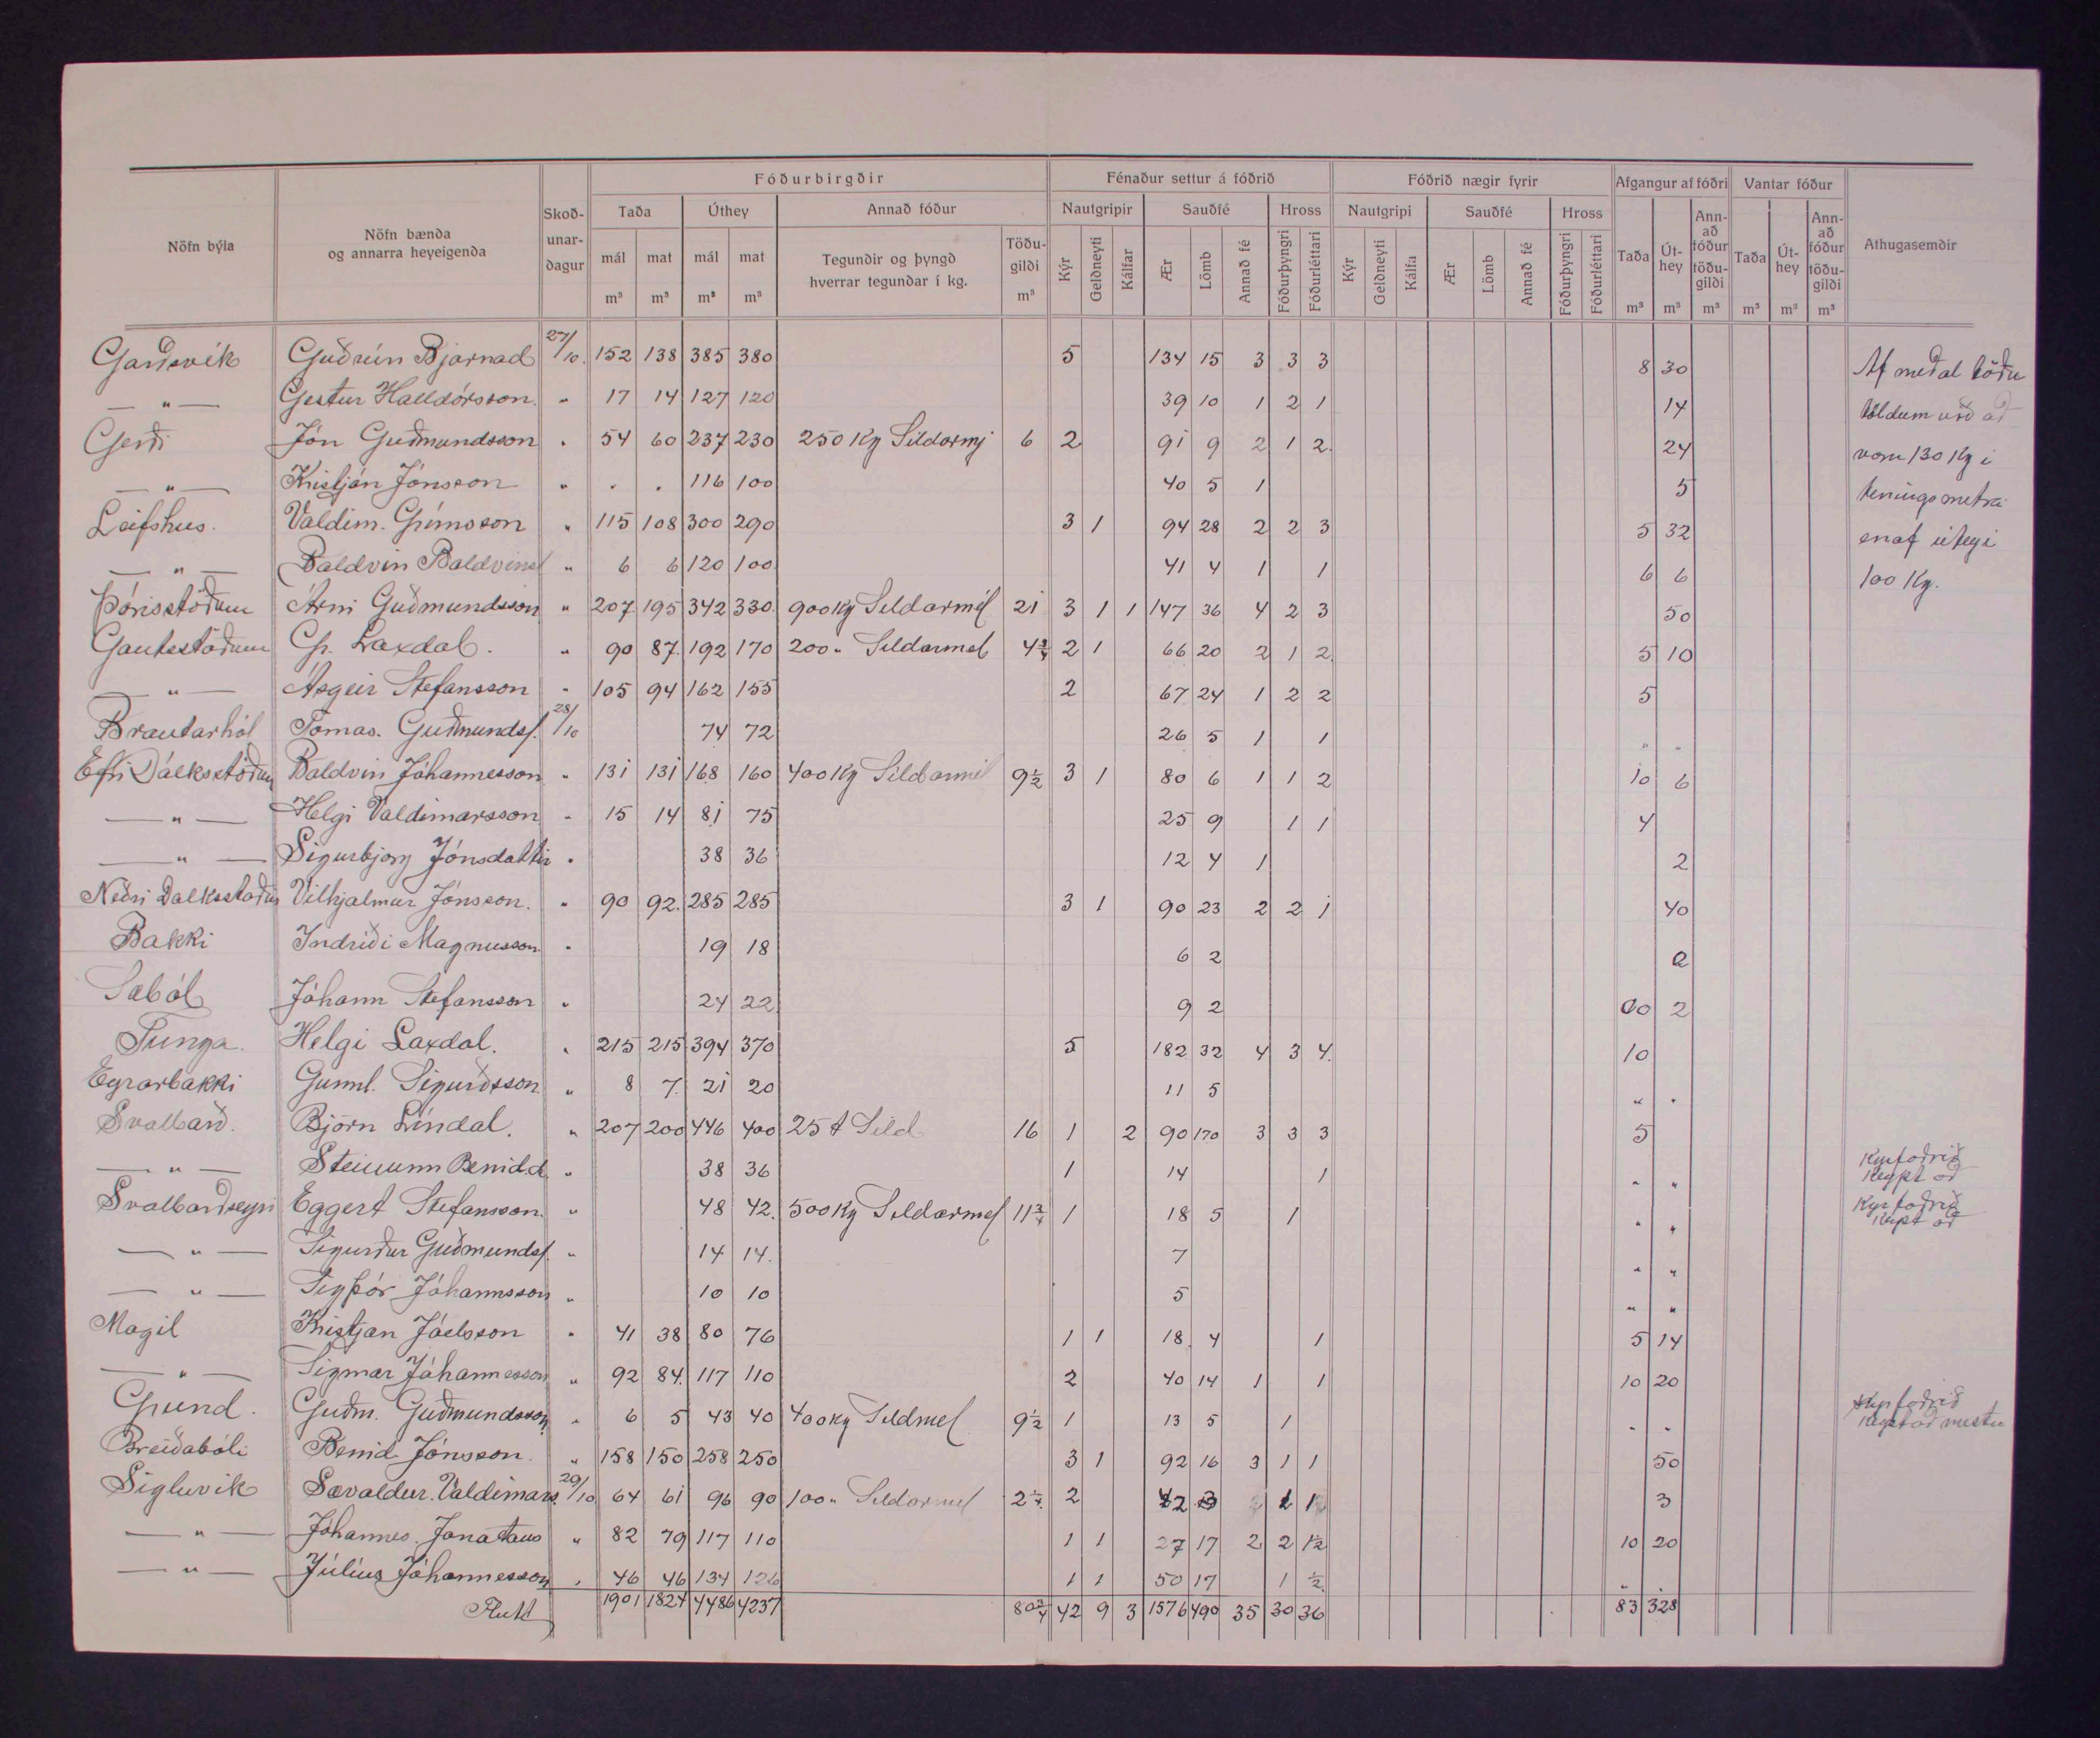 Fóðurbirgðir Fénaður settur á fóðrið Fóðrið nægir fyrir Afgangur af fóðri Vantar fóður
Nöfn býla Nöfn bænda og annarra heyeigenda Skoð-unar-dagur Taða Úthey Annað fóður Nautgripir Sauðfé Hross Nautgripi Sauðfé Hross Taða Út-hey Ann-að fóður töðu-gildi Taða Út-hey Ann-að fóður töðu-gildi Athugasemdir
mál m³ mat m³ mál m³ mat m³ Tegundir og þyngd hverrar tegundar í kg. Töðu-gildi m³ Kýr Geldneyti Kálfar Ær Lömb Annað fé Fóðurþyngri Fóðurléttari Kýr Geldneyti Kálfa Ær Lömb Annað fé Fóðurþyngri Fóðurléttari m³ m³ m³ m³ m³ m³
Garðsvík Guðrún Bjarnad 27/10. 152 138 385 380 5 134 15 3 3 3 8 30 Af meðal töðu
— " — Gestur Halldórsson. " 17 14 127 120 39 10 1 2 1 14 töldum við að
Gerði Jón Guðmundsson " 54 60 237 230 250 Kg Síldarmj 6 2 91 9 2 1 2. 24 voru 130 Kg i
— " — Kristján Jónsson " . . 116 100 40 5 1 5 tenings metra
Leifshus. Valdim. Grímsson " 115 108 300 290 3 1 94 28 2 2 3 5 32 en af útheyi
— " — Baldvin Baldvins " 6 6 120 100 41 4 1 1 6 6 100 Kg.
Þórisstöðum Árni Guðmundsson " 207 195 342 330. 900 Kg Síldarmél 21 3 1 1 147 36 4 2 3 50
Gautsstöðum Gr. Laxdal. " 90 87. 192 170 200 " Síldarmel 4 3/4 2 1 66 20 2 1 2. 5 10
— " — Ásgeir Stefansson " 105 94 162 155 2 67 24 1 2 2 5
Brautarhól Tómas. Guðmundss. 28/10 74 72 26 5 1 1 " "
Efri Dálksstöðum Baldvin Jóhannesson " 131 131 168 160 400 Kg Síldarmél 9 1/2 3 1 80 6 1 1 2 10 6
— " — Helgi Valdimarsson " 15 14 81 75 25 9 1 1 4
— " — Sigurbjorg Jónsdottir " 38 36 12 4 1 2
Neðri Dalksstaðir Vilhjalmur Jónsson. " 90 92. 285 285 3 1 90 23 2 2 1 40
Bakki Indriði Magnusson " 19 18 6 2 2
Sæból Jóhann Stefansson " 24 22 9 2 00 2
Tunga Helgi Laxdal. " 215 215 394 370 5 182 32 4 3 4. 10
Egrarbakki Gunnl. Sigurðsson " 8 7. 21 20 11 5 " "
Svalbarð. Björn Líndal. " 207 200 446 400 25 t Síld 16 1 2 90 170 3 3 3 5
— " — Steinunn Benid.d. " 38 36 1 14 1 " " Kyrfoðrið keypt að
Svalbarðseyri Eggert Stefansson. " 48 42. 500 Kg Síldarmel 11 3/4 1 18 5 1 " " Kyrfoðrið keypt að
— " — Sigurður Guðmundss. " 14 14. 7 " "
— " — Sigþór Jóhannsson " 10 10 5 " "
Magil Kristjan Jóelsson " 41 38 80 76 1 1 18 4 1 5 14
— " — Sigmar Jóhannesson " 92 84. 117 110 2 40 14 1 1 10 20
Grund. Guðm. Guðmundsson " 6 5 43 40 400 kg Síldmel 9 1/2 1 13 5 1 " " Kyrfoðrið keypt að mestu
Breiðabóli Benid Jónsson. " 158 150 258 250 3 1 92 16 3 1 1 50
Sigluvík Sævaldur. Valdimars. 29/10 64 61 96 90 100 " Síldarmel 2 1/4. 2 3
— " — Jóhannes. Jonatans " 82 79 117 110 1 1 27 17 2 2 1 1/2 10 20
— " — Július Jóhannesson " 46 46 134 126 1 1 50 17 1 1/2. " "
Flutt 1901 1824 4486 4237 80 3/4 42 9 3 1576 490 35 30 36 83 328